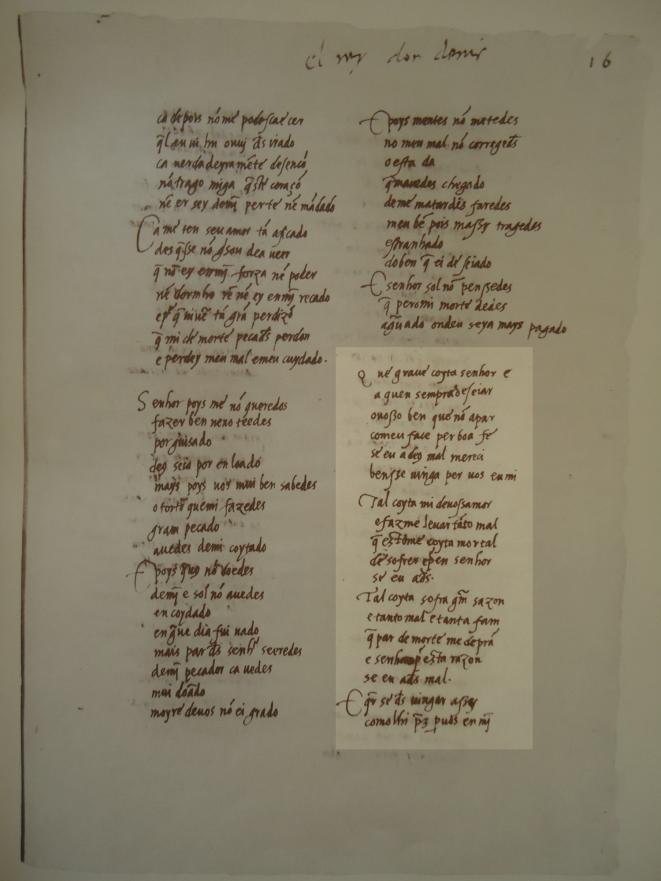 el rey don denis
16
ca depois nōme podoscaecer
ca uerdadeyramēte desencō
nē er sey demj̄ perte nē mādado
Ca me ten seu amor tā aficado
des q̄sse nō gsou dea ueer
q̄ nō ey enmj̄ forza nē poder
nē dormho rē nē ey enmj̄ recado
q̄ mi dē morte pecads perdon
e perdey meu mal emeu cuydado.
Senhor poys me nō queredes
fazer ben neno teedes
por guisado
deg seia por en loado
mays poys uos mui ben sabedes
o torto quemi fazedes
gram pecado
auedes demi coytado
E poys que nō doedes
demj̄ e sol nō auedes
en coydado
en gue dia fui nado
mais par ds senhr seeredes
demj̄ pecador ca uedes
mui dōado
moyre deuos nō ei grado
E poys mentes nō metedes
no meu mal nō corregeds
o esta da
q̄ mauedes chegado
deme matardes faredes
meu bē pois massy tragedes
estranhado
do ben q̄ ei deseiado
E senhor sol nō penssedes
q̄ pero mi morte dedes
aguado ondeu seya mays pagado
Que graue coyta senhor e
a quen sempra deseiar
o uosso ben que nō a par
comeu face per boā fe
se eu a deg mal mereci
bensse uinga per uos en mi
Tal coyta mi deuossamor
e faz me leuar tāto mal
q̄ esto me coyta mortal
de sofrer e pen senhor
se eu a ds.
Tal coyta sofra gm̄ sazon
e tanto mal e tanta fam
q̄ par de morte me de prā
e senhor p̄ esta razon
se eu ads mal.
E q̄r se ds uingar assy
como lhi p̄z p uos en mj̄